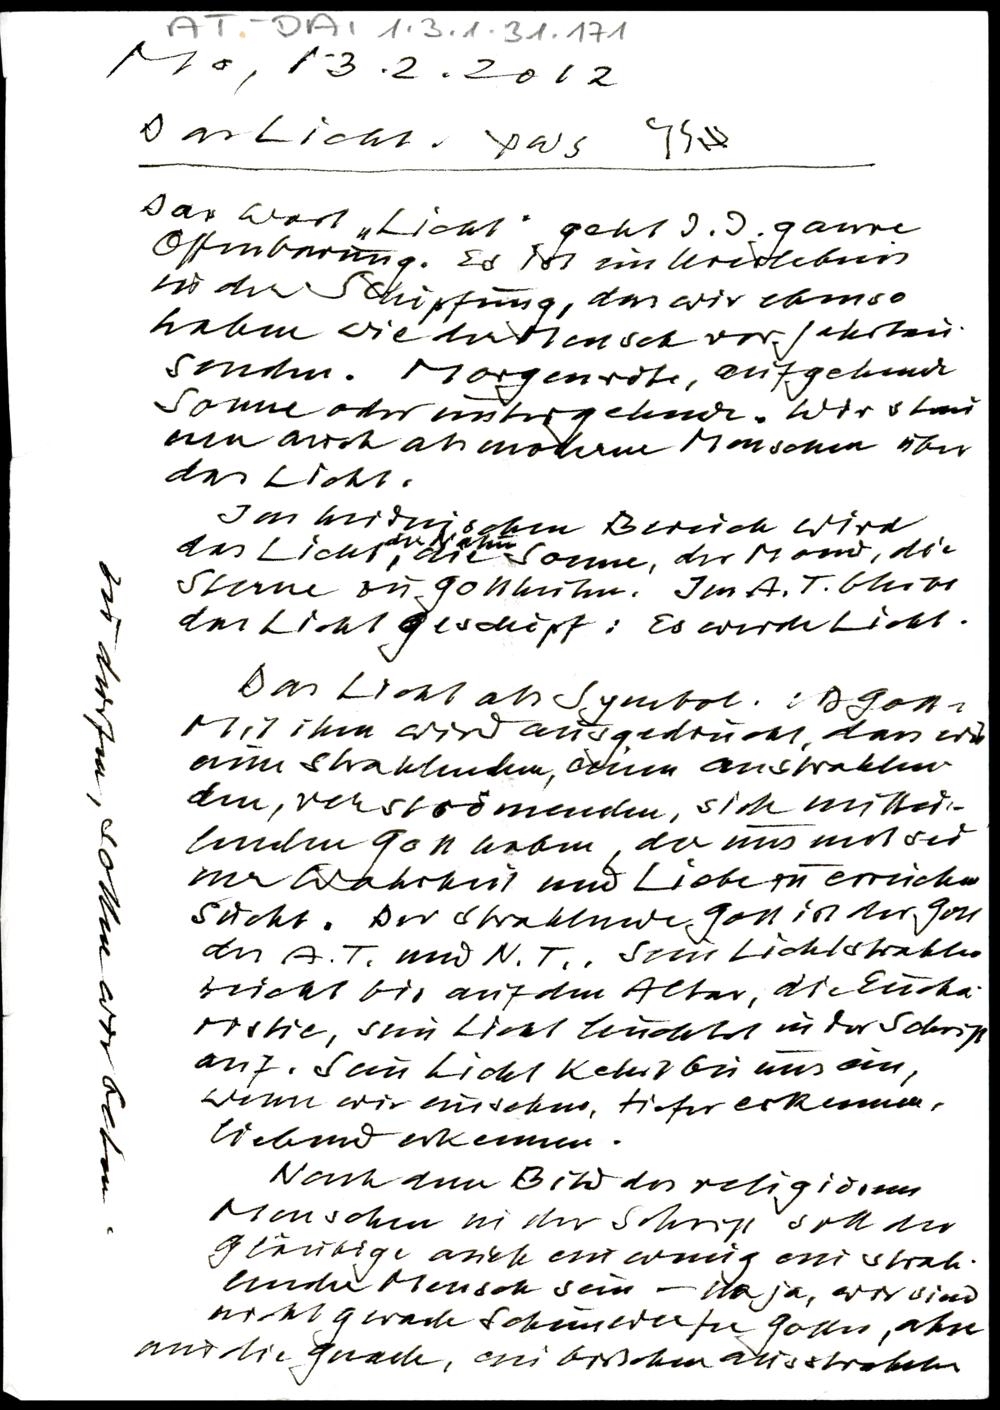 AT.-DAI 1.3.1.31.171
Mo, 13.2.2012
Das Licht. φως
Das Wort „Licht" geht d. d. ganze
Offenbarung. Es ist ein Urerlebnis
in der Schöpfung, das wir ebenso
haben wie der Mensch vor Jahrtau
senden. Morgenröte, aufgehende
Sonne oder untergehende. Wir stau
nen auch als moderne Menschen über
das Licht.
Im heidnischen Bereich wird
das Licht, die Sonne, der Mond, die
Sterne zu Gottheiten. Im A.T. bleibt
das Licht geschöpf: Es werde Licht.
Das Licht als Symbol. Gott
Mit ihm wird ausgedrückt, dass wir
einen strahlenden, einen ausstrahlen
den, verströmenden, sich mittei-
lenden Gott haben, der uns mit sei
ner Wahrheit und Liebe zu erreichen
sucht. Der strahlende Gott ist der Gott
des A.T. und N.T.. Sein Lichtstrahlen
reicht bis auf den Altar, die Eucha
ristie, sein Licht leuchtet in der Schrift
auf. Sein Licht kehrt bei uns ein,
wenn wir einsehen, tiefer erkennen,
liebend erkennen.
Nach dem Bild des religiösen
Menschen in der Schrift soll der
Gläubige auch ein wenig ein strah-
lender Mensch sein – na ja, wir sind
nicht gerade Scheinwerfer Gottes, aber
um die Gnade, ein bisschen ausstrahlen
zu dürfen, sollen wir beten.